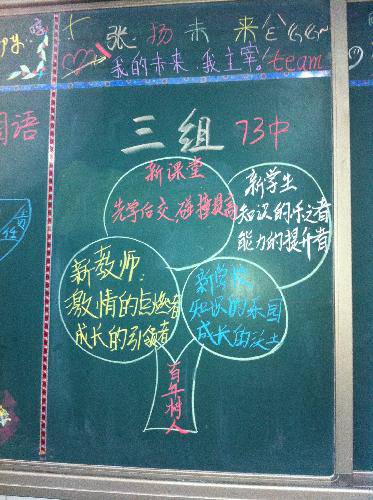 张扬未来
我的未来我主宰。team
三组 73中
新课堂
先学后交,碰撞提高
新学生
知识的乐之者
能力的提升者
新教师:
激情的点燃者
成长的引领者
新学校
知识的乐园
成长的沃土
百年树人
国语
责任